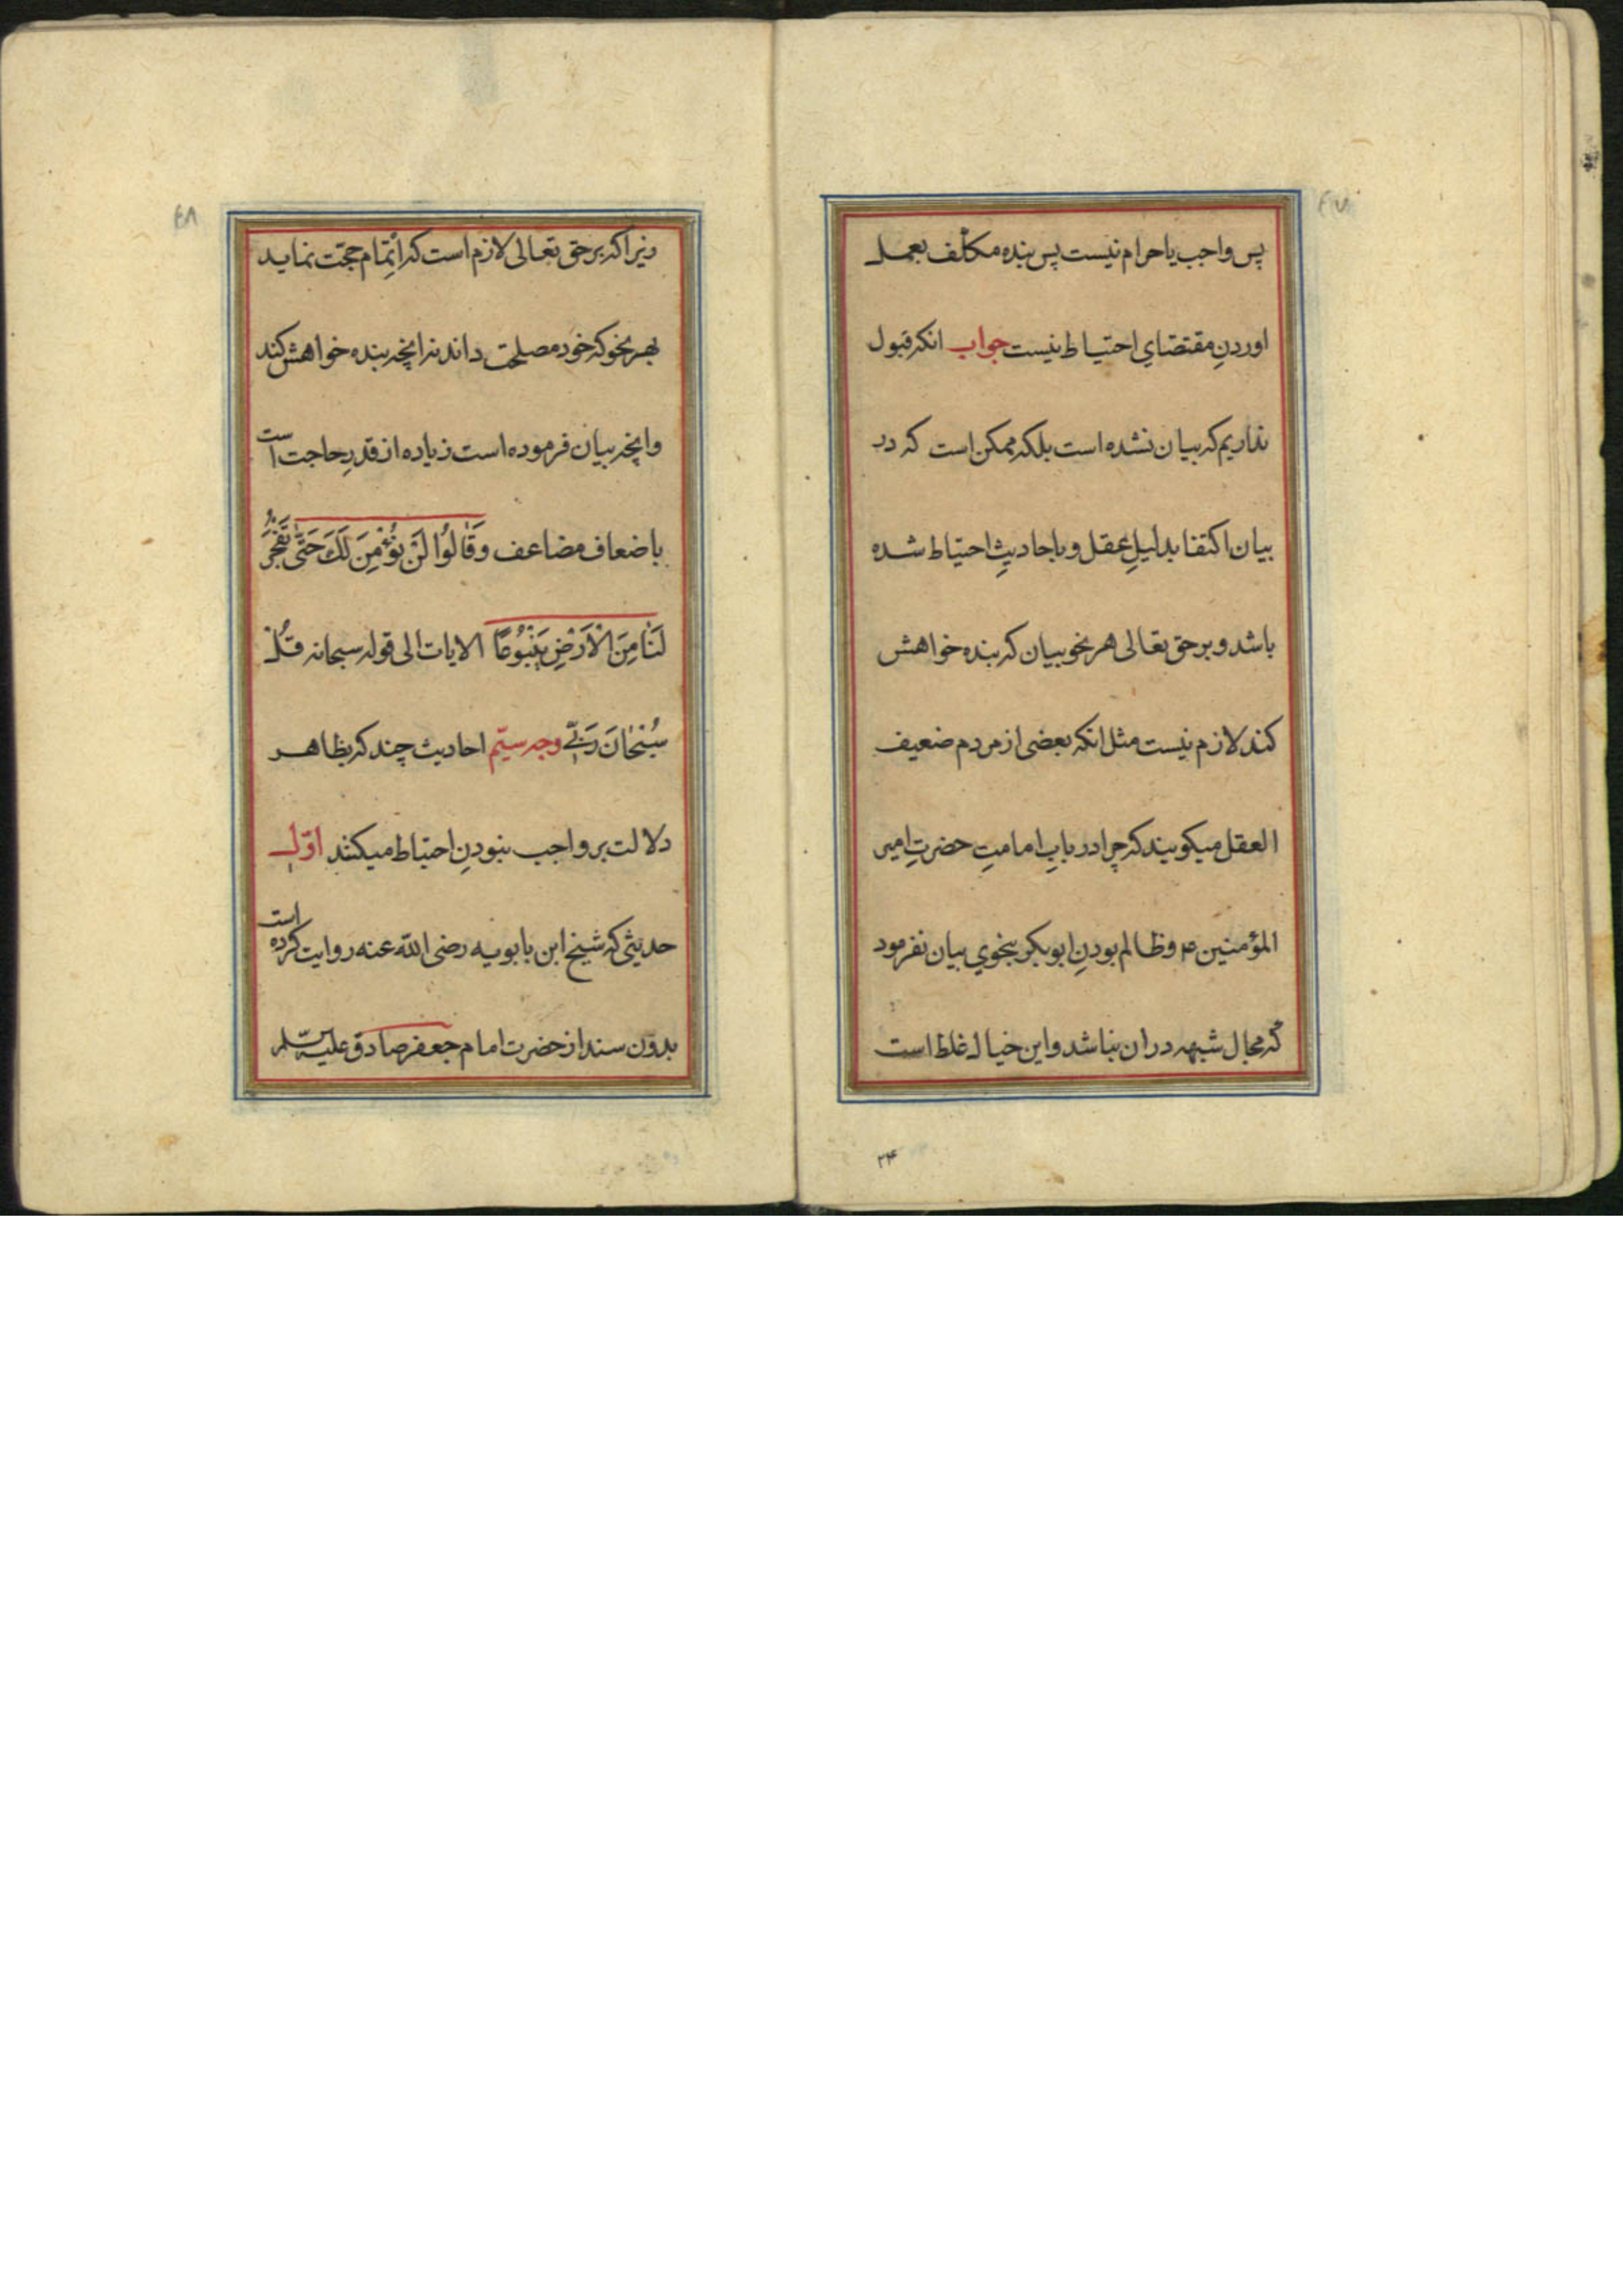 پس واجب یا حرام نیست پس بنده مکلّف بعمل
اوردنِ مقتضای احتیاط نیست جواب انکه قبول
نداریم که بیان نشده است بلکه ممکن است که در
بیان اکتفا بدلیلِ عقل و باحادیثِ احتیاط شده
باشد و بر حق تعالی هر نحو بیان که بنده خواهش
کند لازم نیست مثل انکه بعضی از مردم ضعیف
العقل میکویند که چرا در بابِ امامتِ حضرتِ امیر
المؤمنین ع و ظالم بودنِ ابوبکر بنحوی بیان نفرمود
که مجال شبهه در ان نباشد و این خیال غلط است
۲۴
۴۸
زیرا که بر حق تعالی لازم است که اِتمام حجّت نماید
بهر نحو که خود مصلحت داند نه انچه بنده خواهش کند
و انچه بیان فرموده است زیاده از قدرِ حاجت است
باضعاف مضاعف وَقَالُوا لَنْ نُؤْمِنَ لَكَ حَتّٰی تَفْجُرَ
لَنَا مِنَ الْاَرْضِ يَنْبُوعًا الایات الی قوله سبحانه قُلْ
سُبْحَانَ رَبِّي وجه سیّم احادیث چند که بظاهر
دلالت بر واجب نبودنِ احتیاط میکنند اوّل
حدیثی که شیخ ابن بابویه رضی الله عنه روایت کرده است
بدون سند از حضرت امام جعفر صادق علیه السّلم